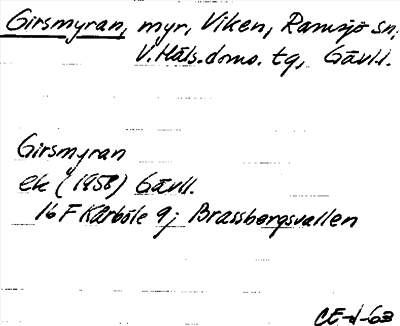 Girsmyran, myr, Viken, Ramsjö sn,
V. Häls. domo. tg, Gävll.
Girsmyran
ek (1958) Gävll.
16 F Kårböle 9j Brassbergsvallen
CE-d-63